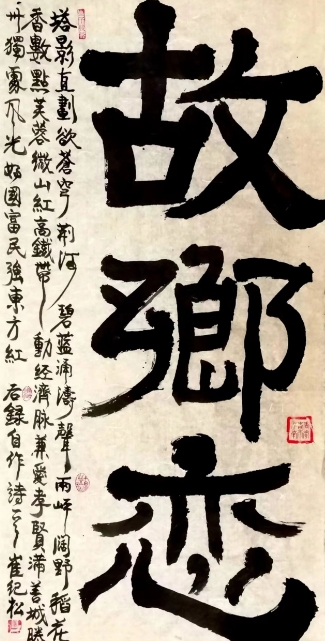 故鄉恋
塔影直劃欲蒼穹荊河碧藍涌濤聲兩岸闊野稻花
香數點芙蓉微山紅高鐵帶動經濟脉兼愛孝賢滿善城勝
獨風光好國富民強東方紅 右錄自作詩 崔紀松